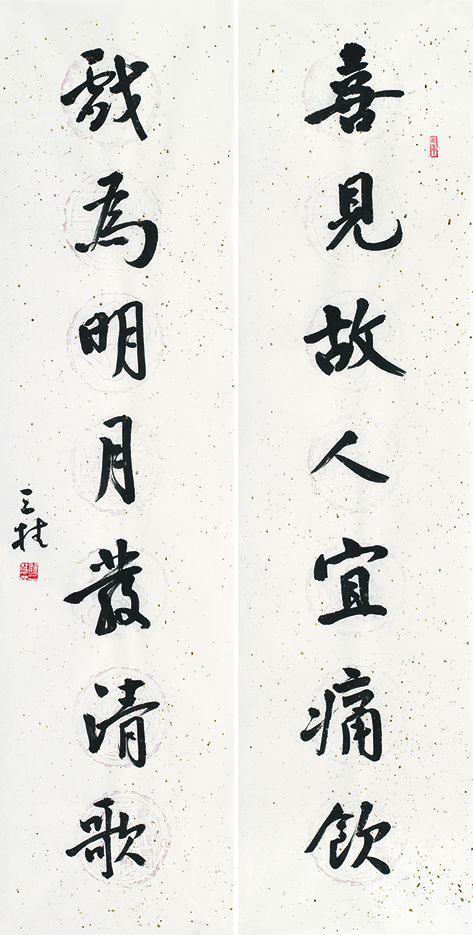 喜見故人宜痛飲
戲為明月發清歌
三桂